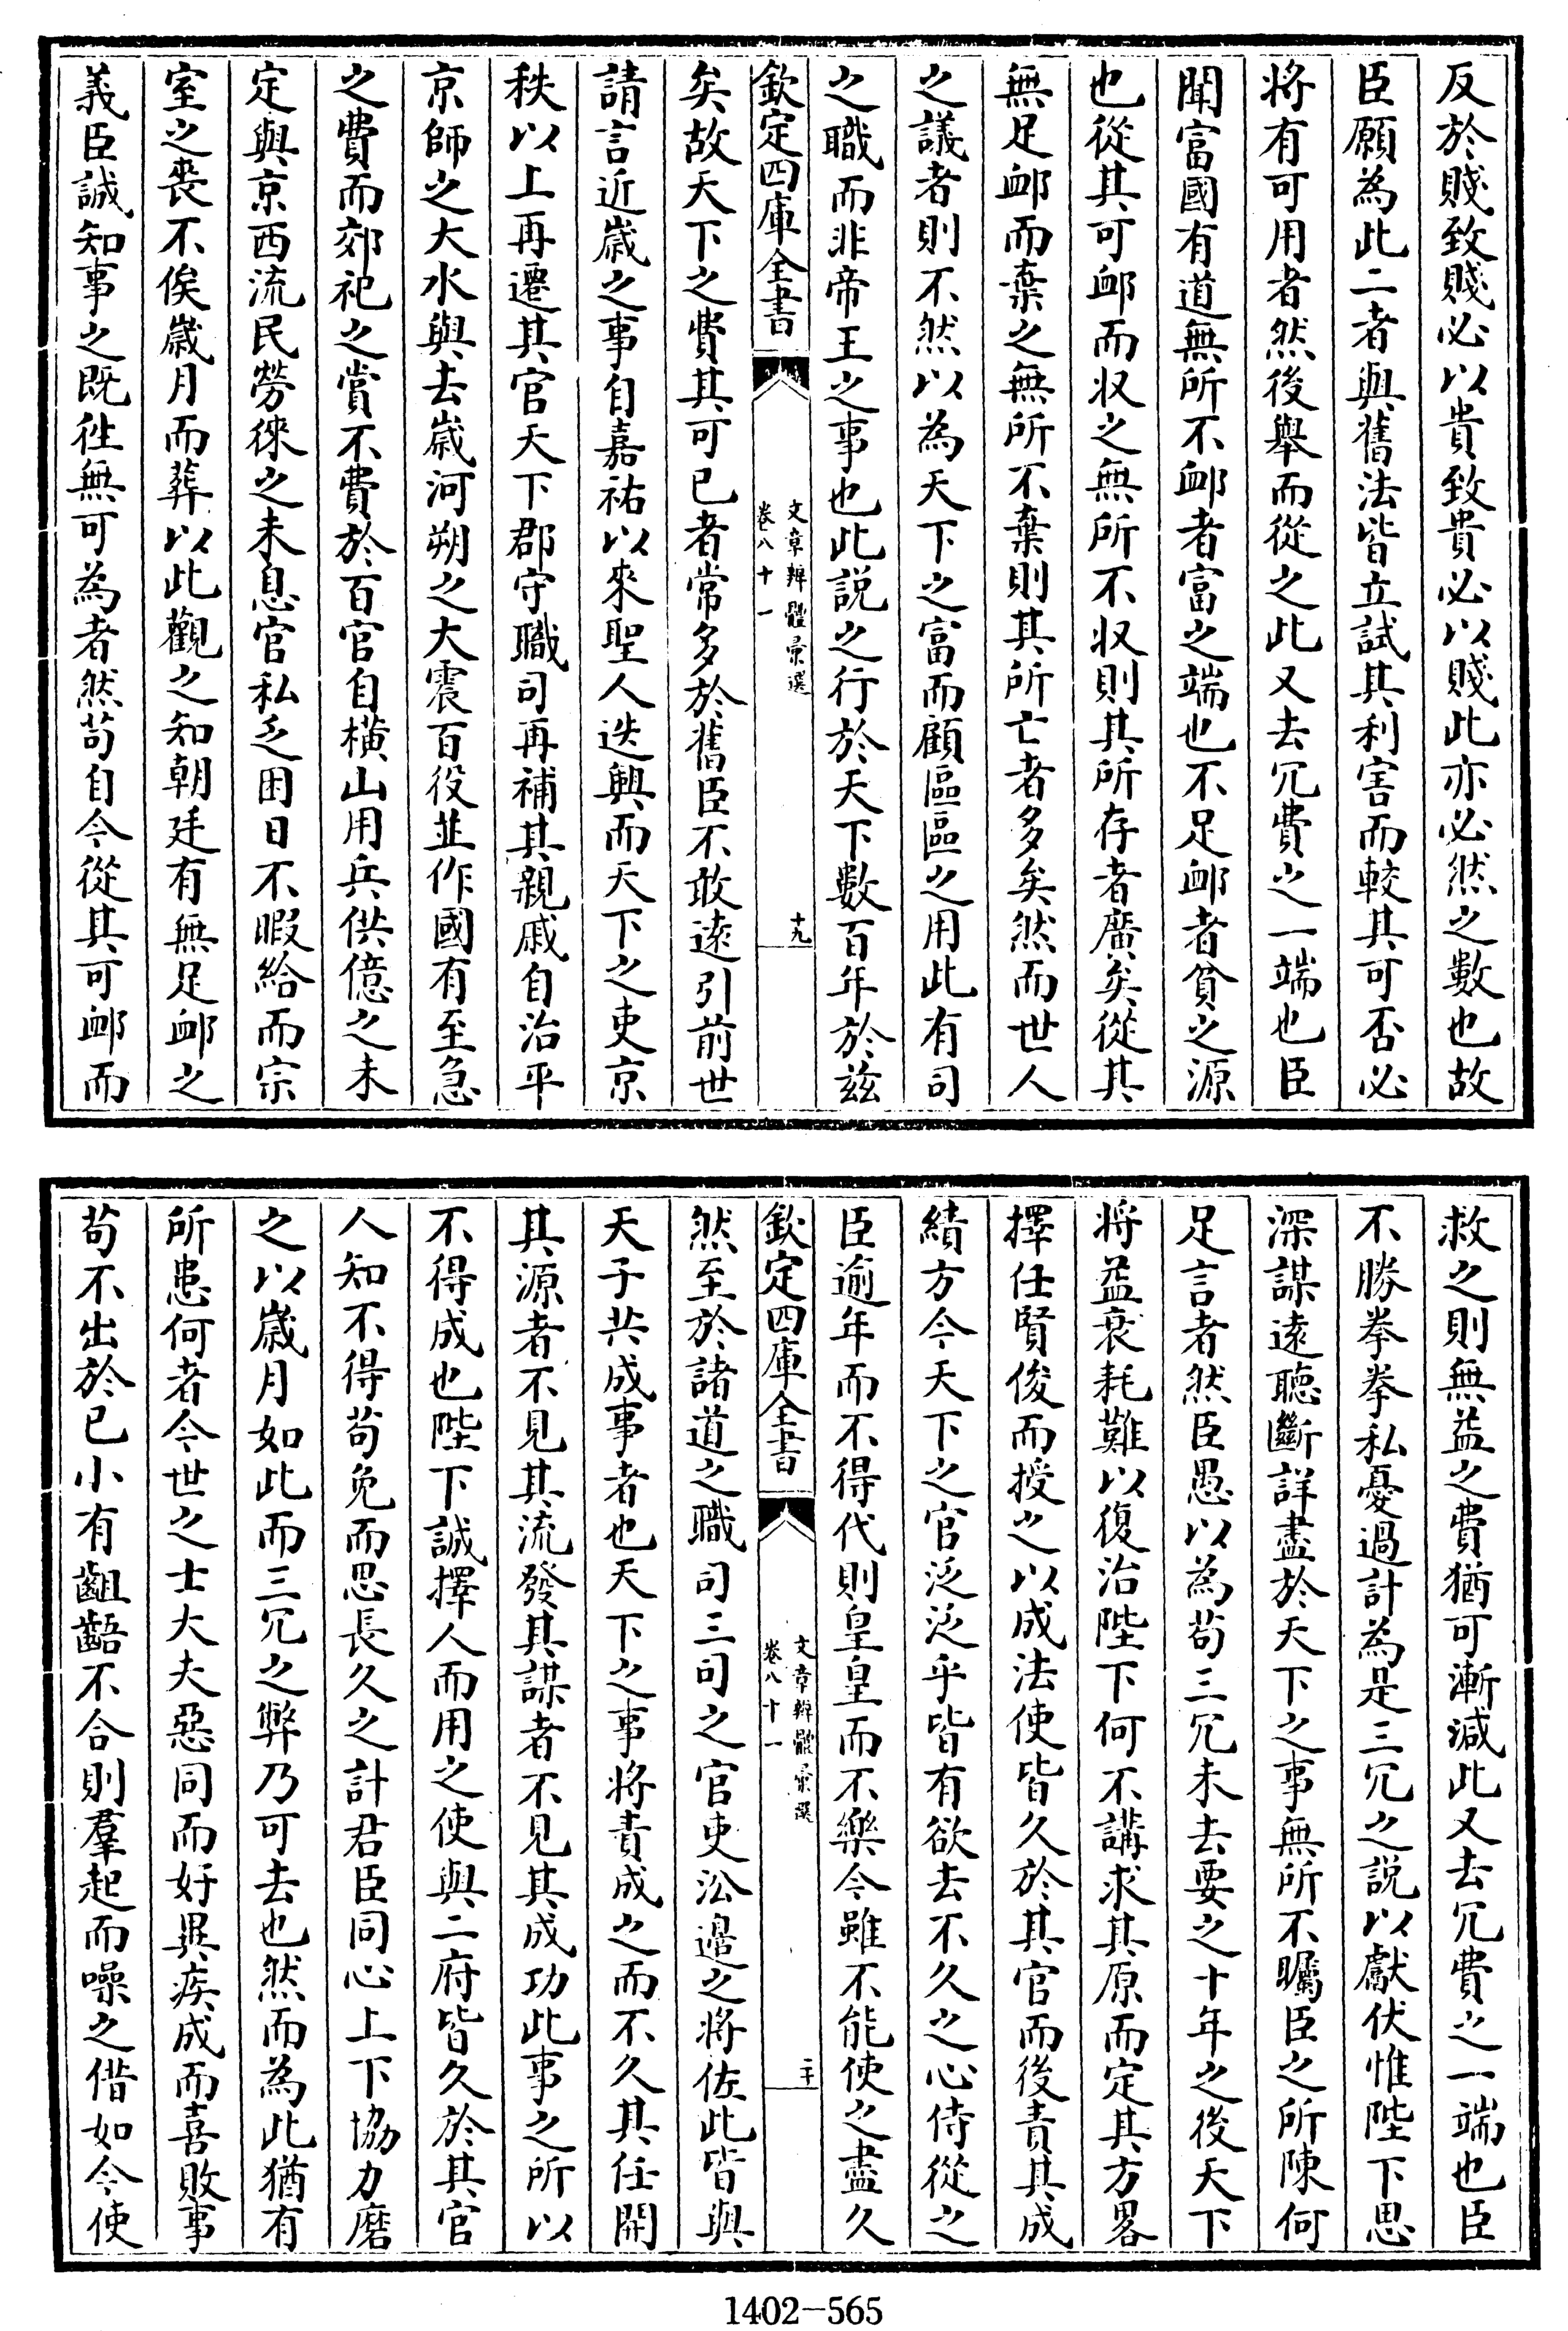 反於賤致賤必以貴致貴必以賤此亦必然之數也故
臣願為此二者與舊法皆立試其利害而較其可否必
將有可用者然後舉而從之此又去冗費之一端也臣
聞富國有道無所不䘏者富之端也不足䘏者貧之源
也從其可䘏而收之無所不收則其所存者廣矣從其
無足䘏而棄之無所不棄則其所亡者多矣然而世人
之議者則不然以為天下之富而顧區區之用此有司
之職而非帝王之事也此説之行於天下數百年於茲
欽定四庫全書
文章辨體彚選
卷八十一
十九
矣故天下之費其可已者常多於舊臣不敢逺引前世
請言近嵗之事自嘉祐以來聖人迭興而天下之吏京
秩以上再遷其官天下郡守職司再補其親戚自治平
京師之大水與去嵗河朔之大震百役並作國有至急
之費而郊祀之賞不費於百官自橫山用兵供億之未
定與京西流民勞徠之未息官私乏困日不暇給而宗
室之喪不俟嵗月而葬以此觀之知朝廷有無足䘏之
義臣誠知事之既徃無可為者然茍自今從其可䘏而
救之則無益之費猶可漸減此又去冗費之一端也臣
不勝拳拳私憂過計為是三冗之説以獻伏惟陛下思
深謀逺聽斷詳盡於天下之事無所不矚臣之所陳何
足言者然臣愚以為茍三冗未去要之十年之後天下
將益衰耗難以復治陛下何不講求其原而定其方畧
擇任賢俊而授之以成法使皆久於其官而後責其成
績方今天下之官泛泛乎皆有欲去不久之心侍從之
臣逾年而不得代則皇皇而不樂今雖不能使之盡久
欽定四庫全書
文章辨體彚選
卷八十一
二十
然至於諸道之職司三司之官吏沿邉之將佐此皆與
天子共成事者也天下之事將責成之而不久其任開
其源者不見其流發其謀者不見其成功此事之所以
不得成也陛下誠擇人而用之使與二府皆久於其官
人知不得茍免而思長久之計君臣同心上下協力磨
之以嵗月如此而三冗之弊乃可去也然而為此猶有
所患何者今世之士大夫惡同而好異疾成而喜敗事
茍不出於已小有齟齬不合則羣起而噪之借如今使
1402-565